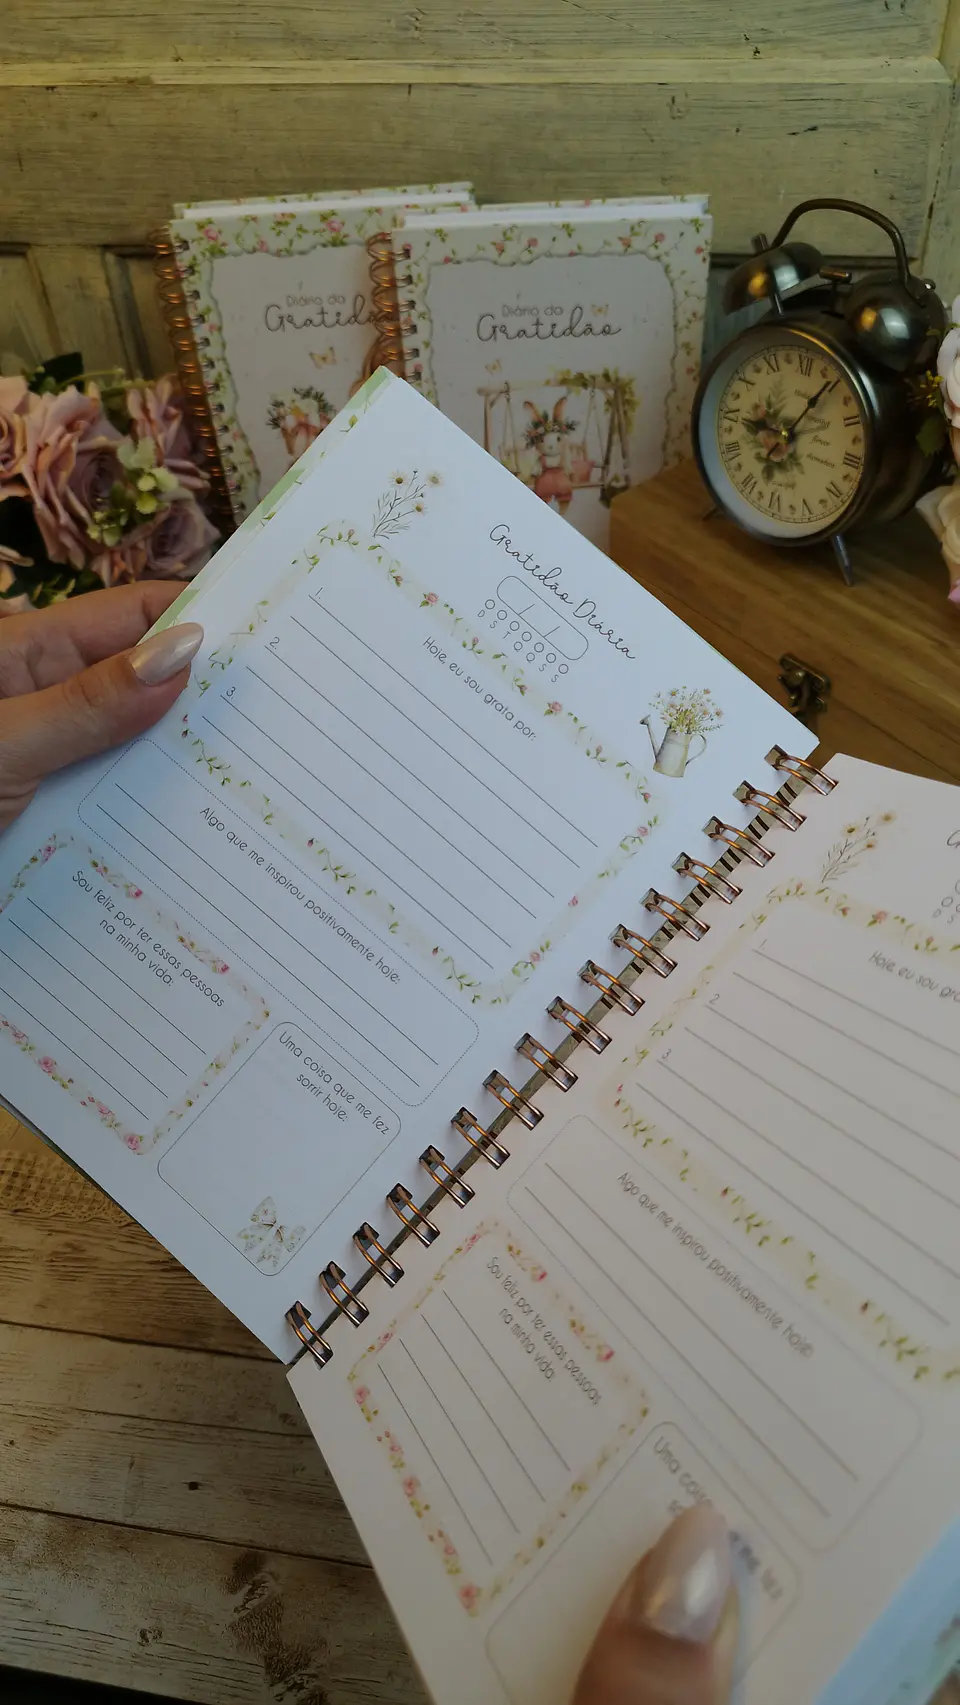 Diário da
Gratidão
Diário da
Gratidão
XII
I
II
III
IIII
V
VI
VII
VIII
IX
X
XI
Gratidão Diária
/ /
D S T Q Q S S
Hoje, eu sou grata por:
1.
2.
3.
Algo que me inspirou positivamente hoje:
Sou feliz por ter essas pessoas
na minha vida:
Uma coisa que me fez
sorrir hoje:
D S
Hoje, eu sou gra
1.
2.
3.
Algo que me inspirou positivamente hoje:
Sou feliz por ter essas pessoas
na minha vida:
Uma cois
me fez